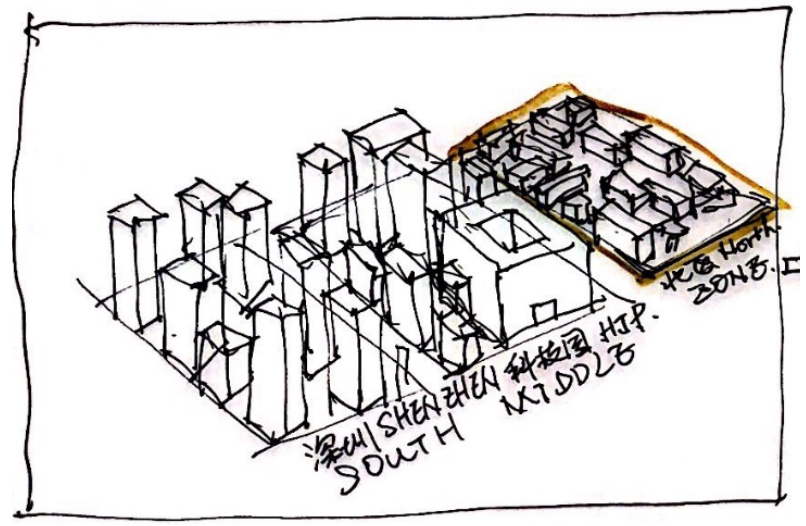 深圳/SHENZHEN 科技园 HIP.
SOUTH MIDDLE
北区 North
ZONE.